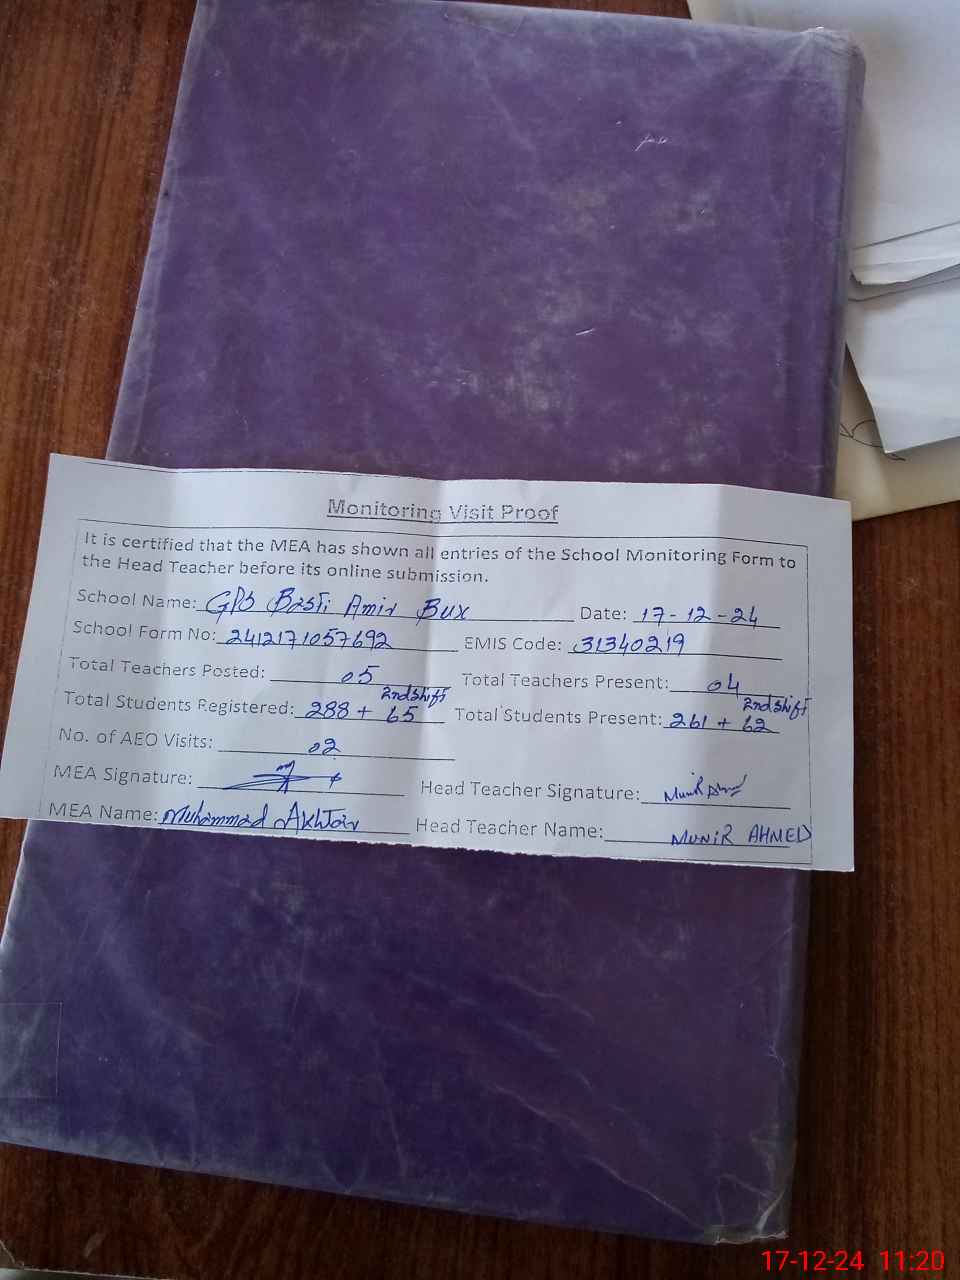 Monitoring Visit Proof
It is certified that the MEA has shown all entries of the School Monitoring Form to
the Head Teacher before its online submission.
School Name: GPS Basti Amir Bux Date: 17-12-24
School Form No: 2412171057692 EMIS Code: 31340219
Total Teachers Posted: 05 Total Teachers Present: 04
2nd Shift 2nd Shift
Total Students Registered: 288 + 65 Total Students Present: 261 + 62
No. of AEO Visits: 02
MEA Signature: Head Teacher Signature: Munir Ahmed
MEA Name: Muhammad Akhtar Head Teacher Name: MUNIR AHMED
17-12-24 11:20